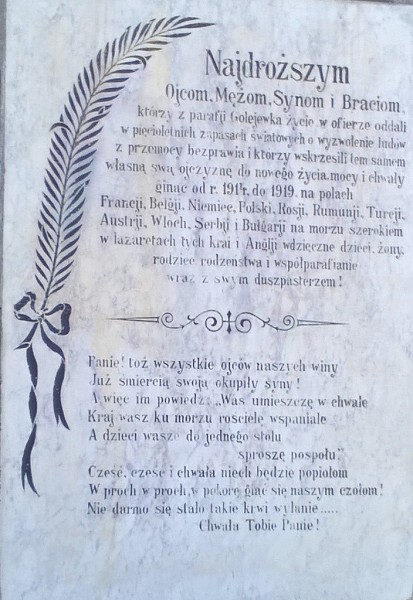 Najdroższym
Ojcom, Mężom, Synom i Braciom,
którzy z parafji Golejewka życie w ofierze oddali
w pięcioletnich zapasach światowych o wyzwolenie ludów
z przemocy bezprawia i ktorzy wskrzesili tem samem
własną swą ojczyznę do nowego życia, mocy i chwały
ginąć od r. 1914, do 1919. na polach
Francji, Belgji, Niemiec, Polski, Rosji, Rumunji, Turcji,
Austrji, Włoch, Serbji i Bułgarji na morzu szerokiem
w lazaretach tych krai i Anglji wdzięczne dzieci, żony,
rodzice rodzeństwa i współparafianie
wraz z swym duszpasterzem!
Panie! toż wszystkie ojców naszych winy
Już śmiercią swoją okupiły syny!
A więc im powiedz: „Was umieszczę w chwale
Kraj wasz ku morzu rościelę wspaniale
A dzieci wasze do jednego stołu
sproszę pospołu”
Cześć, cześć i chwała niech będzie popiołom
W proch w proch, w pokorę giąć się naszym czołom!
Nie darmo się stało takie krwi wylanie.....
Chwała Tobie Panie!